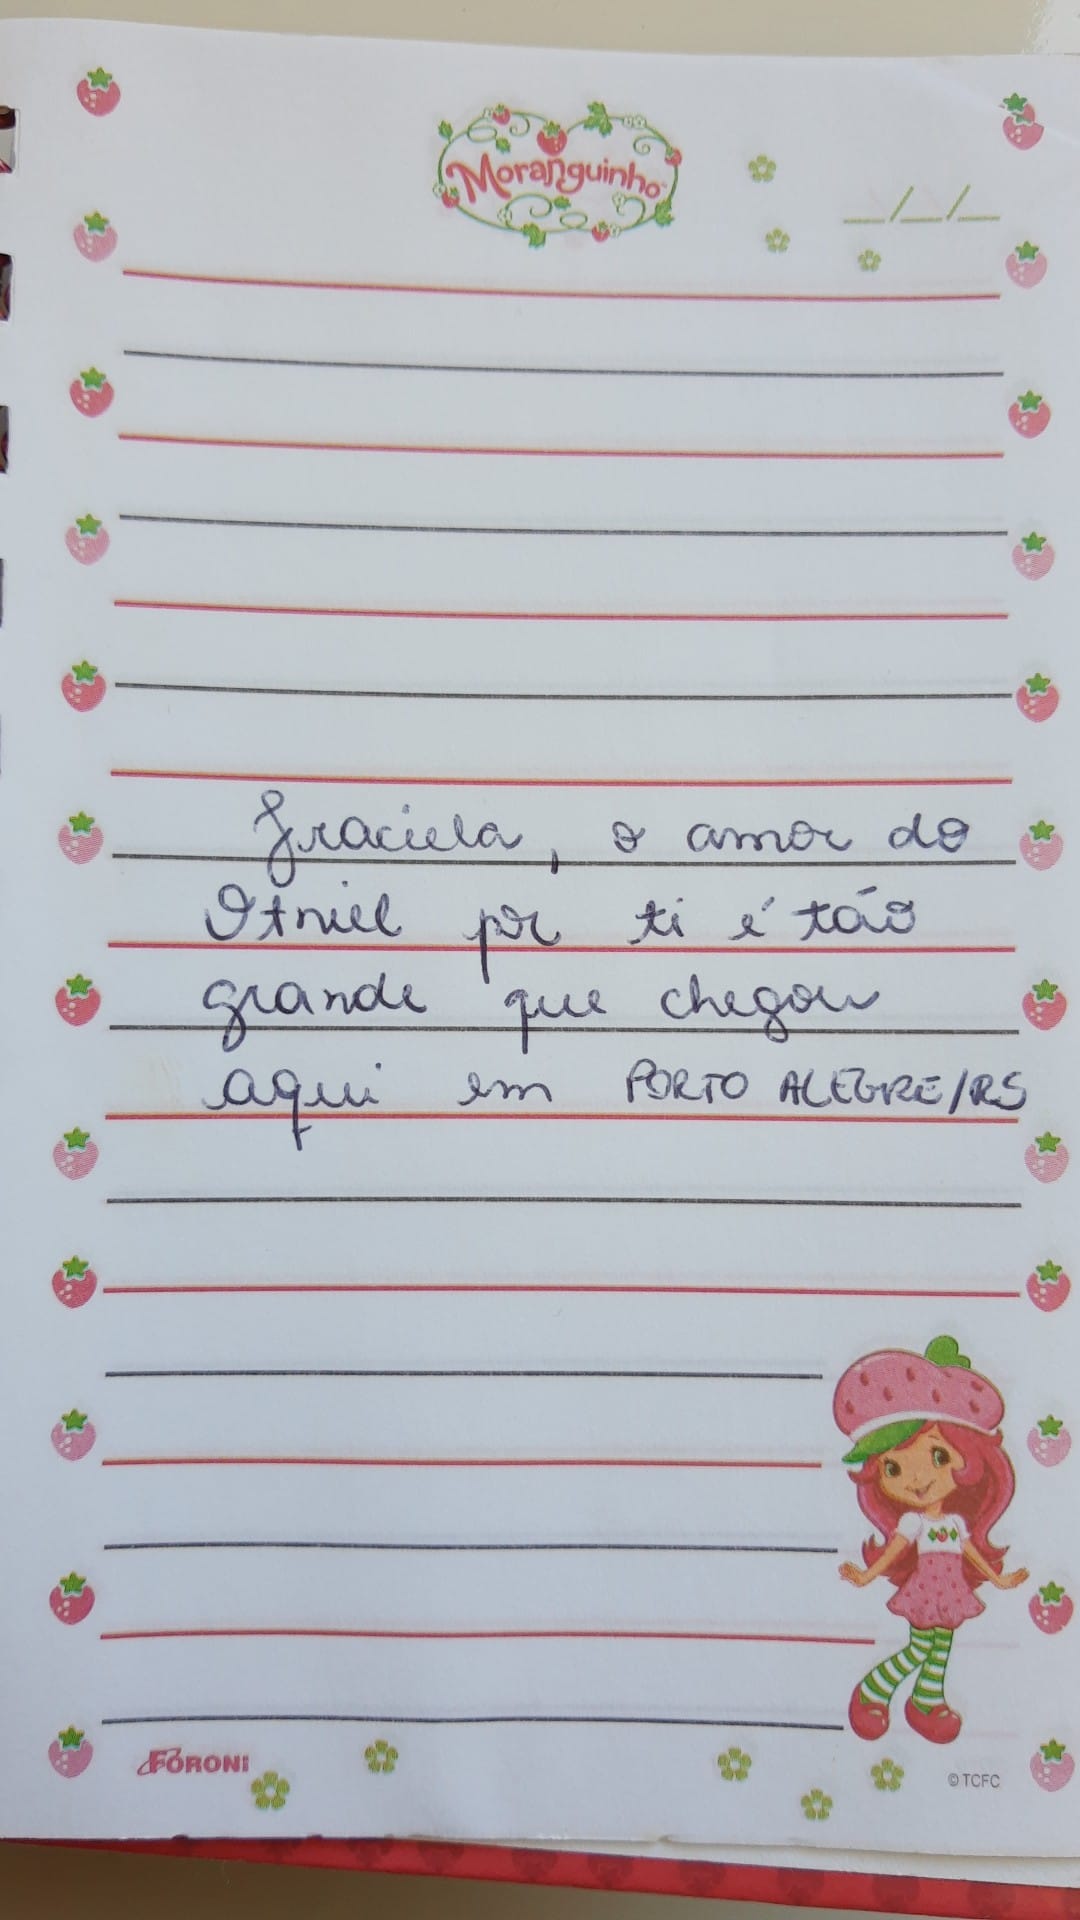 Moranguinho
__/__/__
Graciela, o amor do
Otniel por ti é tão
grande que chegou
aqui em PORTO ALEGRE/RS
FORONI
© TCFC